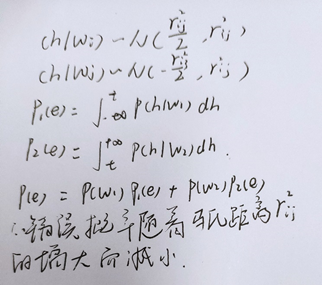 (h/wi) ~ N( r²ij/2 , r²ij )
(h/wj) ~ N(- r²ij/2 , r²ij )
P₁(e) = ∫₋∞ᵗ P(h/w₁) dh
P₂(e) = ∫ₜ⁺∞ P(h/w₂)dh.
P(e) = P(w₁) P₁(e) + P(w₂)P₂(e)
∴错误概率随着马氏距离 r²ij
的增大而减小.